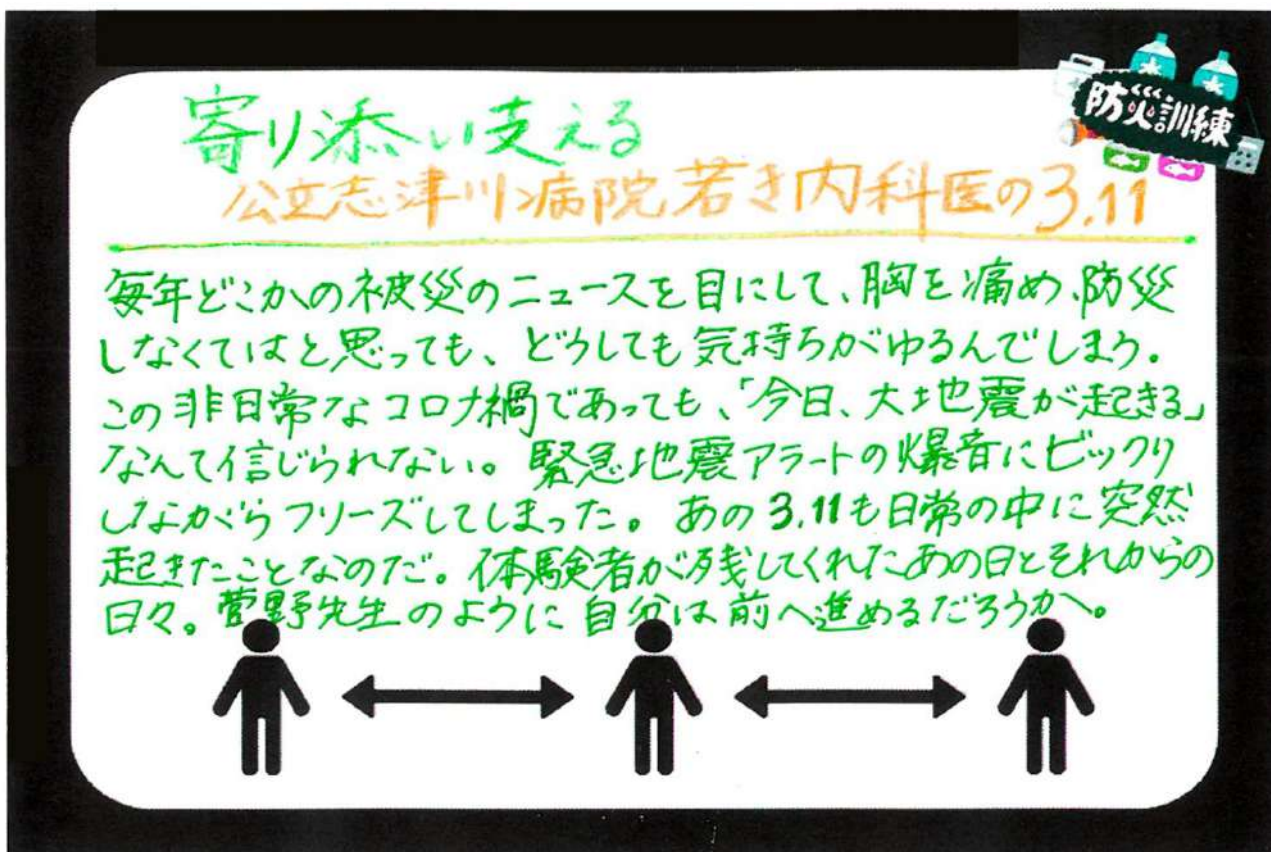 防災訓練
寄り添い支える
公立志津川病院若き内科医の3.11
毎年どこかの被災のニュースを目にして、胸を痛め、防災
しなくてはと思っても、どうしても気持ちがゆるんでしまう。
この非日常なコロナ禍であっても、「今日、大地震が起きる」
なんて信じられない。緊急地震アラートの爆音にビックリ
しながらフリーズしてしまった。あの3.11も日常の中に突然
起きたことなのだ。体験者が残してくれたあの日とそれからの
日々。菅野先生のように自分は前へ進めるだろうか。